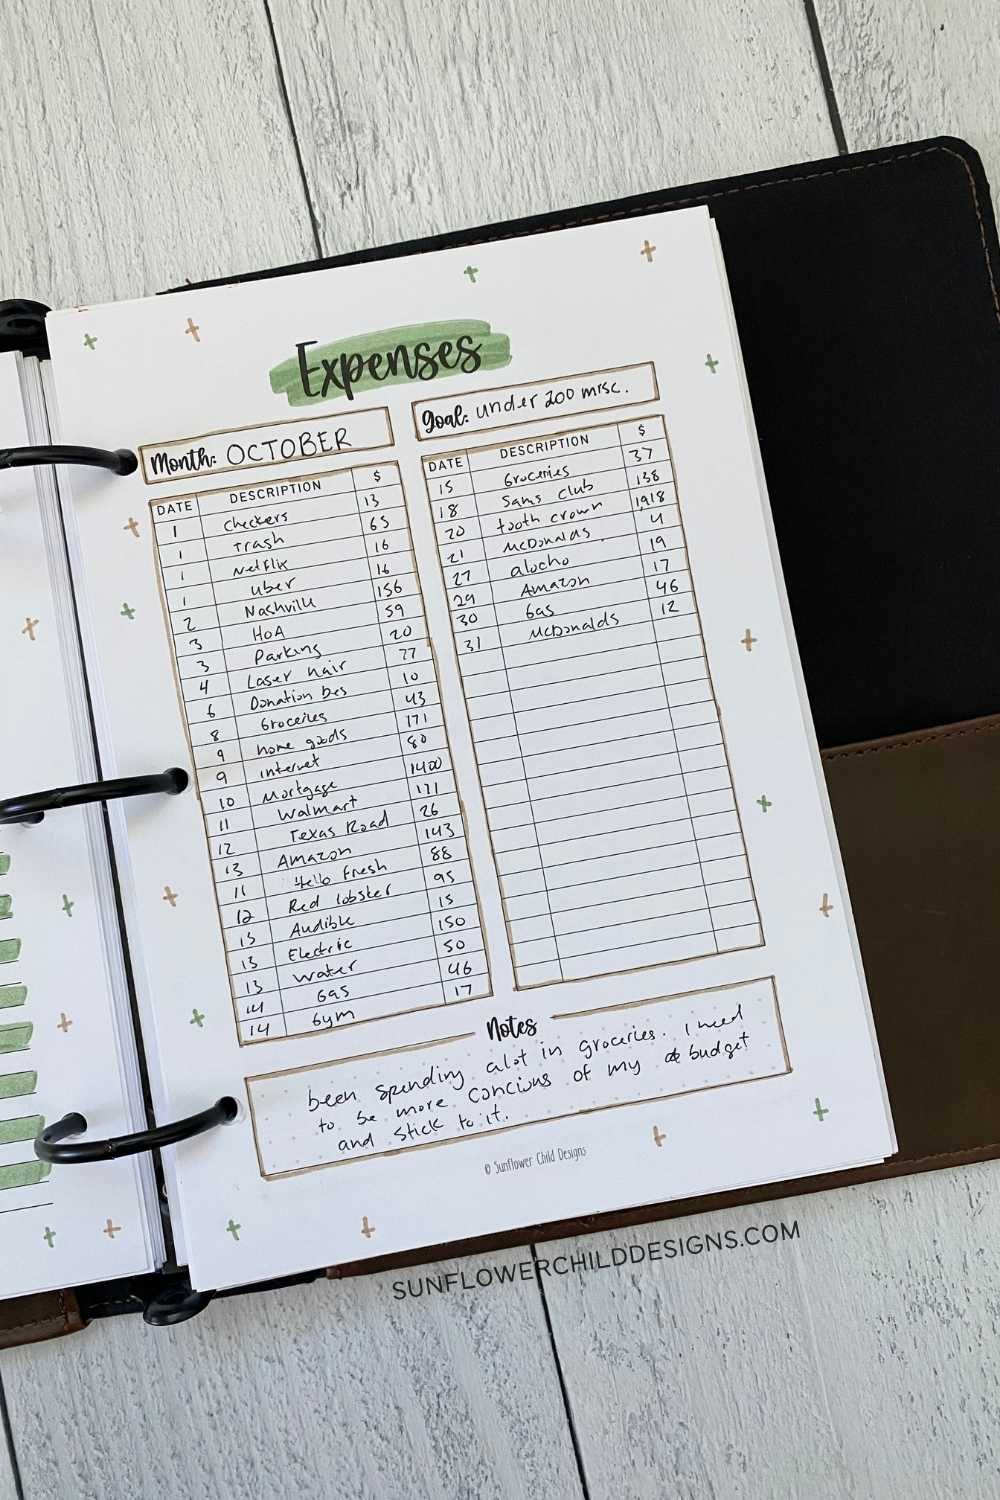 Expenses
Month: OCTOBER
Goal: under 200 misc.
DATE DESCRIPTION $
1 checkers 13
1 Trash 65
1 Netflix 16
1 uber 16
2 Nashville 156
3 HOA 59
3 Parking 20
4 Laser hair 77
6 Donation 10
8 Groceries 43
9 home goods 171
9 internet 80
10 Mortgage 1400
11 Walmart 171
12 Texas Road 26
13 Amazon 143
11 Hello Fresh 88
12 Red lobster 95
13 Audible 15
13 Electric 150
13 water 50
14 Gas 46
14 Gym 17
DATE DESCRIPTION $
15 Groceries 37
18 Sams club 138
20 tooth crown 1918
21 McDonalds 4
27 19
29 Amazon 17
30 Gas 46
31 McDonalds 12
Notes
been spending alot in groceries. I need
to be more concious of my budget
and stick to it.
© Sunflower Child Designs
SUNFLOWERCHILDDESIGNS.COM